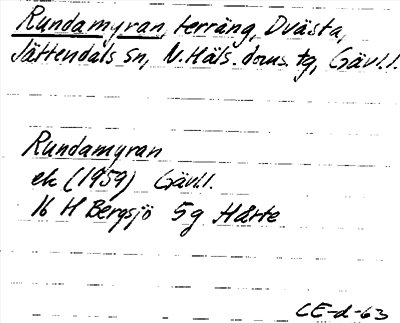 Rundamyran, terräng, Dvästa,
Jättendals sn, N. Häls. doms. tg, Gävl.l.
Rundamyran
ek (1959) Gävl.l.
16 H Bergsjö 5g Håtte
CE-d-63